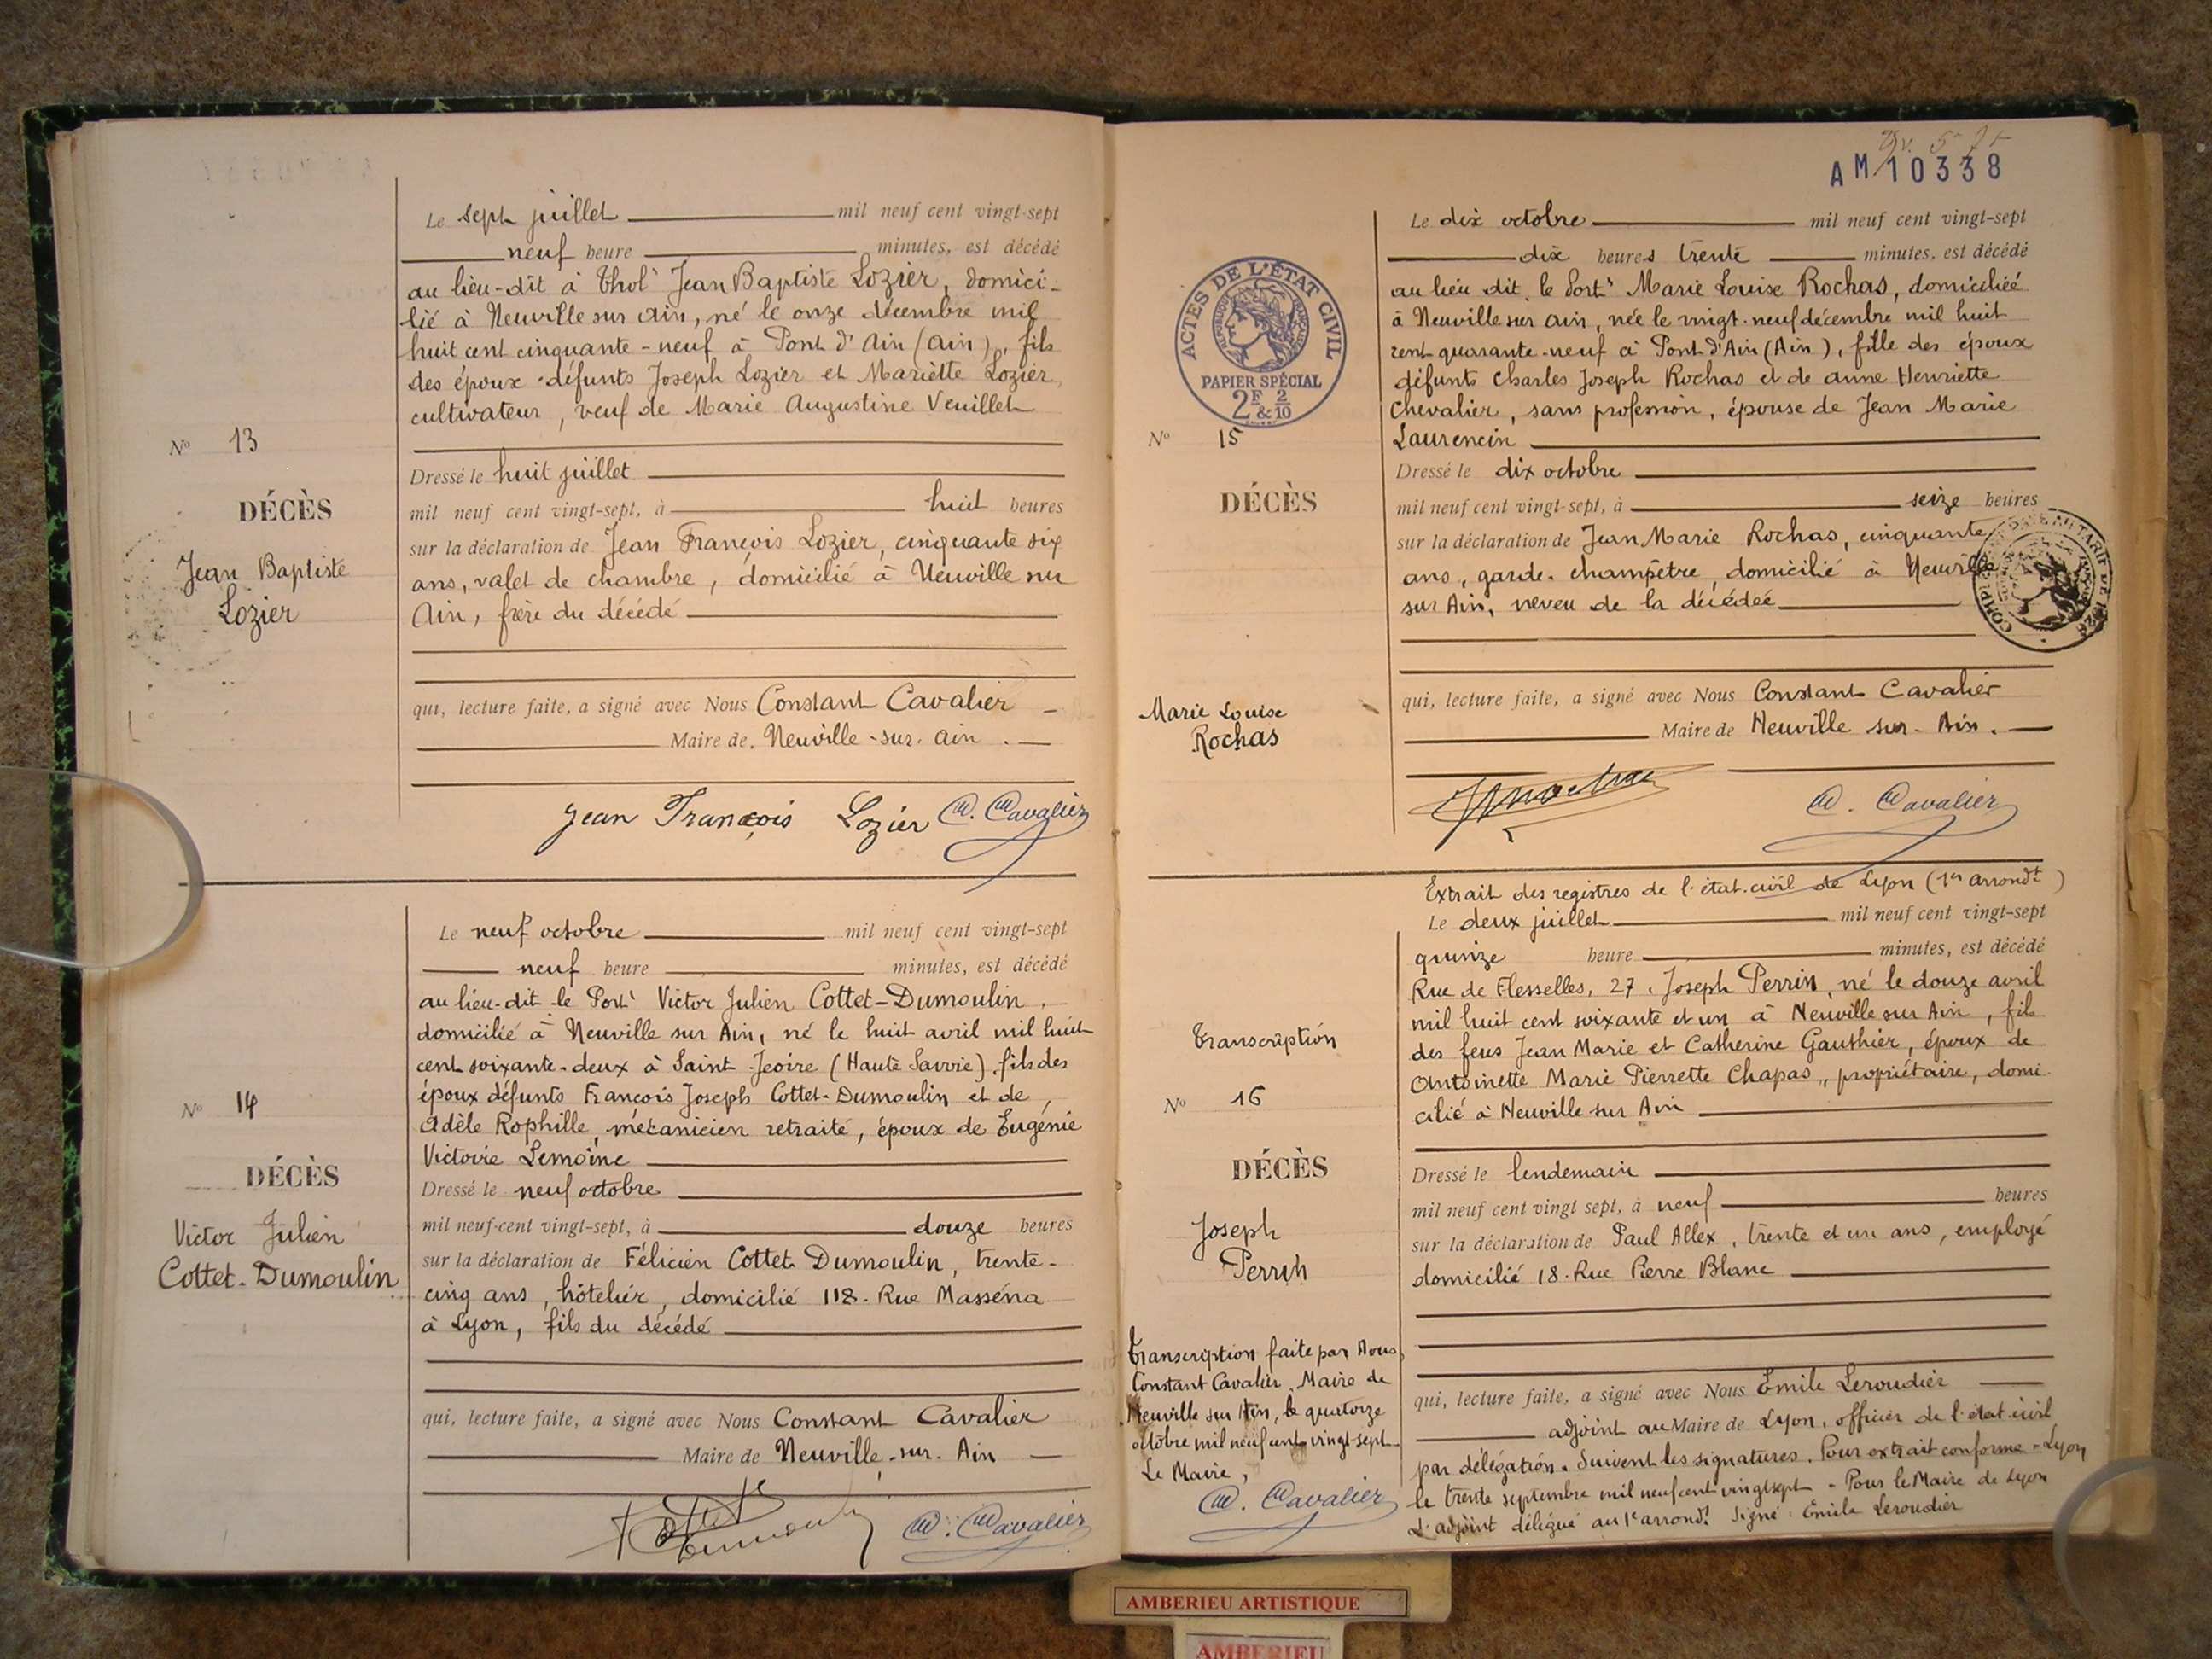 Le sept juillet mil neuf cent vingt-sept
neuf heure minutes, est décédé
au lieu-dit à Thol Jean Baptiste Lozier, domici-
lié à Neuville sur Ain, né le onze décembre mil
huit cent cinquante-neuf à Pont d'Ain (Ain), fils
des époux défunts Joseph Lozier et Mariette Lozier,
cultivateur, veuf de Marie Augustine Veuillet
N° 13
DÉCÈS
Jean Baptiste
Lozier
Dressé le huit juillet
mil neuf cent vingt-sept, à huit heures
sur la déclaration de Jean François Lozier, cinquante six
ans, valet de chambre, domicilié à Neuville sur
Ain, frère du décédé
qui, lecture faite, a signé avec Nous Constant Cavalier
Maire de Neuville-sur-Ain.
Jean François Lozier C. Cavalier
Le neuf octobre mil neuf cent vingt-sept
neuf heure minutes, est décédé
au lieu-dit le Port Victor Julien Cottet-Dumoulin,
domicilié à Neuville sur Ain, né le huit avril mil huit
cent soixante-deux à Saint-Jeoire (Haute Savoie), fils des
époux défunts François Joseph Cottet-Dumoulin et de
Adèle Rophille, mécanicien retraité, époux de Eugénie
Victoire Lemoine
N° 14
DÉCÈS
Victor Julien
Cottet-Dumoulin
Dressé le neuf octobre
mil neuf-cent vingt-sept, à douze heures
sur la déclaration de Félicien Cottet-Dumoulin, trente-
cinq ans, hôtelier, domicilié 118. Rue Masséna
à Lyon, fils du décédé
qui, lecture faite, a signé avec Nous Constant Cavalier
Maire de Neuville-sur-Ain
Cottet Dumoulin C. Cavalier
AM 10338
Le dix octobre mil neuf cent vingt-sept
dix heures trente minutes, est décédé
au lieu dit le Port Marie Louise Rochas, domiciliée
à Neuville sur Ain, née le vingt-neuf décembre mil huit
cent quarante-neuf à Pont d'Ain (Ain), fille des époux
défunts Charles Joseph Rochas et de Anne Henriette
Chevalier, sans profession, épouse de Jean Marie
Laurencin
ACTES DE L'ÉTAT CIVIL
PAPIER SPÉCIAL
2F & 2/10
N° 15
DÉCÈS
Marie Louise
Rochas
Dressé le dix octobre
mil neuf cent vingt-sept, à seize heures
sur la déclaration de Jean Marie Rochas, cinquante
ans, garde-champêtre, domicilié à Neuville
sur Ain, neveu de la décédée
qui, lecture faite, a signé avec Nous Constant Cavalier
Maire de Neuville sur-Ain.
C. Cavalier
Extrait des registres de l'état-civil de Lyon (1er arrondt)
Le deux juillet mil neuf cent vingt-sept
quinze heure minutes, est décédé
Rue de Flesselles, 27, Joseph Perrin, né le douze avril
mil huit cent soixante et un à Neuville sur Ain, fils
des feus Jean Marie et Catherine Gauthier, époux de
Antoinette Marie Pierrette Chapas, propriétaire, domi-
cilié à Neuville sur Ain
Transcription
N° 16
DÉCÈS
Joseph
Perrin
Dressé le lendemain
mil neuf cent vingt sept, à neuf heures
sur la déclaration de Paul Allex, trente et un ans, employé
domicilié 18. Rue Pierre Blanc
qui, lecture faite, a signé avec Nous Emile Leroudier
adjoint au Maire de Lyon, officier de l'état civil
par délégation. Suivent les signatures. Pour extrait conforme - Lyon
le trente septembre mil neuf cent vingt sept - Pour le Maire de Lyon
L'adjoint délégué au 1er arrondt Signé : Emile Leroudier
Transcription faite par Nous,
Constant Cavalier, Maire de
Neuville sur Ain, le quatorze
octobre mil neuf cent vingt-sept
Le Maire,
C. Cavalier
AMBERIEU ARTISTIQUE
AMBERIEU